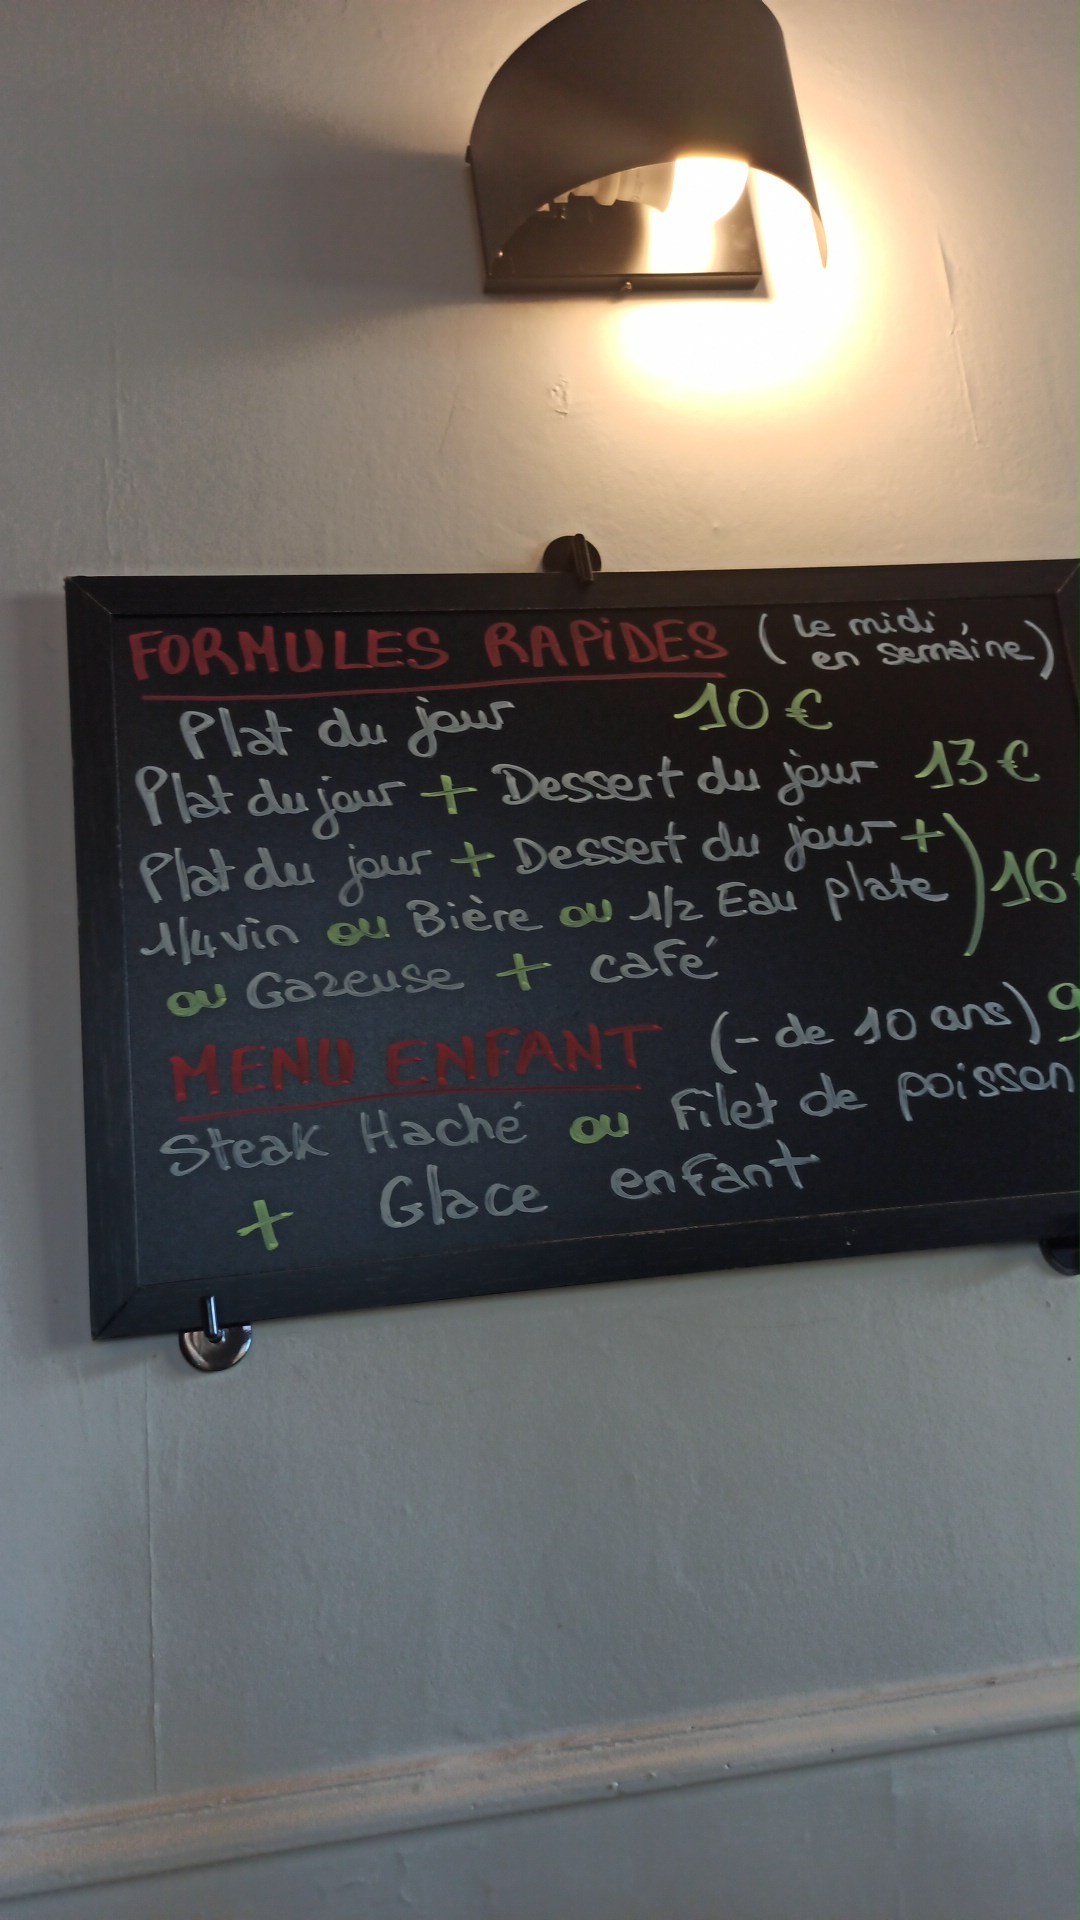 FORMULES RAPIDES (Le midi, en semaine)
Plat du jour 10 €
Plat du jour + Dessert du jour 13 €
Plat du jour + Dessert du jour +
1/4 vin ou Bière ou 1/2 Eau plate ) 16
ou Gazeuse + café
MENU ENFANT (- de 10 ans) 9
Steak Haché ou Filet de poisson
+ Glace enfant